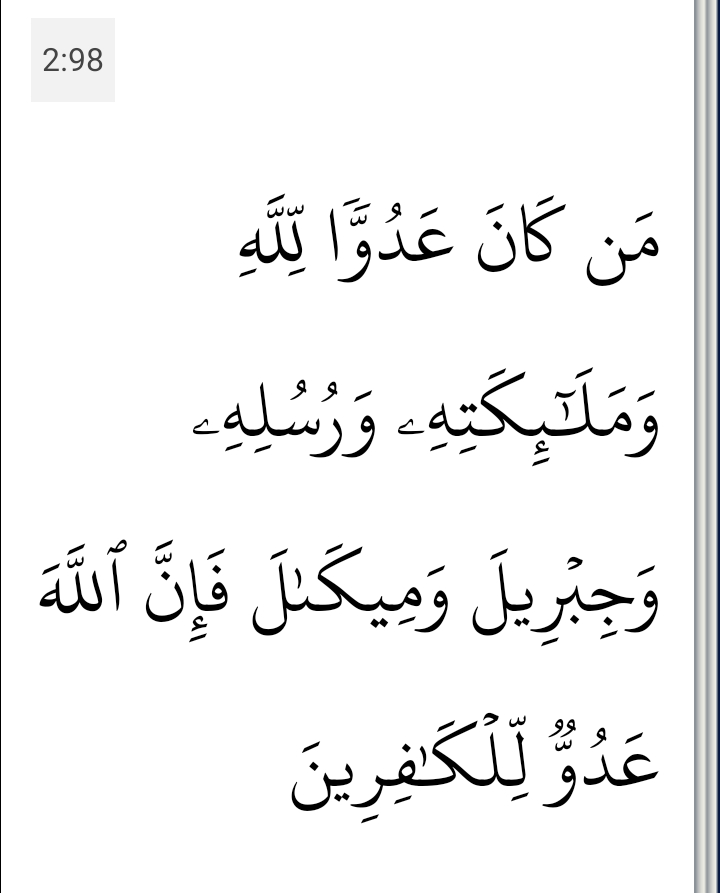 2:98
مَن كَانَ عَدُوًّا لِّلَّهِ
وَمَلَـٰٓئِكَتِهِۦ وَرُسُلِهِۦ
وَجِبْرِيلَ وَمِيكَىٰلَ فَإِنَّ ٱللَّهَ
عَدُوٌّ لِّلْكَـٰفِرِينَ